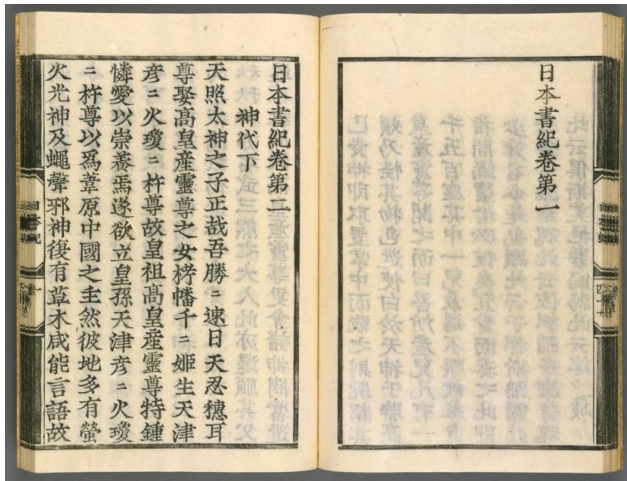 日本書紀卷第一
日本書紀卷第二
神代下
天照太神之子正哉吾勝ニ速日天忍穗耳
尊娶高皇産靈尊之女栲幡千ニ姬生天津
彦ニ火瓊ニ杵尊故皇祖高皇産靈尊特鍾
憐愛以崇養焉遂欲立皇孫天津彦ニ火瓊
ニ杵尊以爲葦原中國之主然彼地多有螢
火光神及蠅聲邪神復有草木咸能言語故